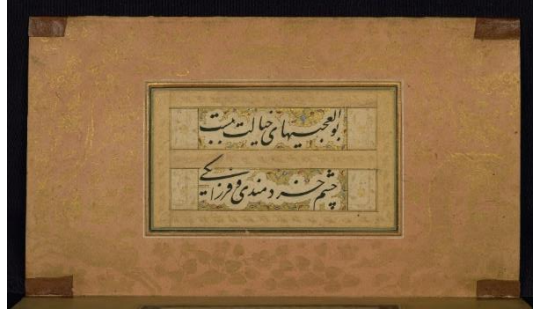 بوالعجبیهای خیالت ببست
چشم خردمندی و فرزانگی